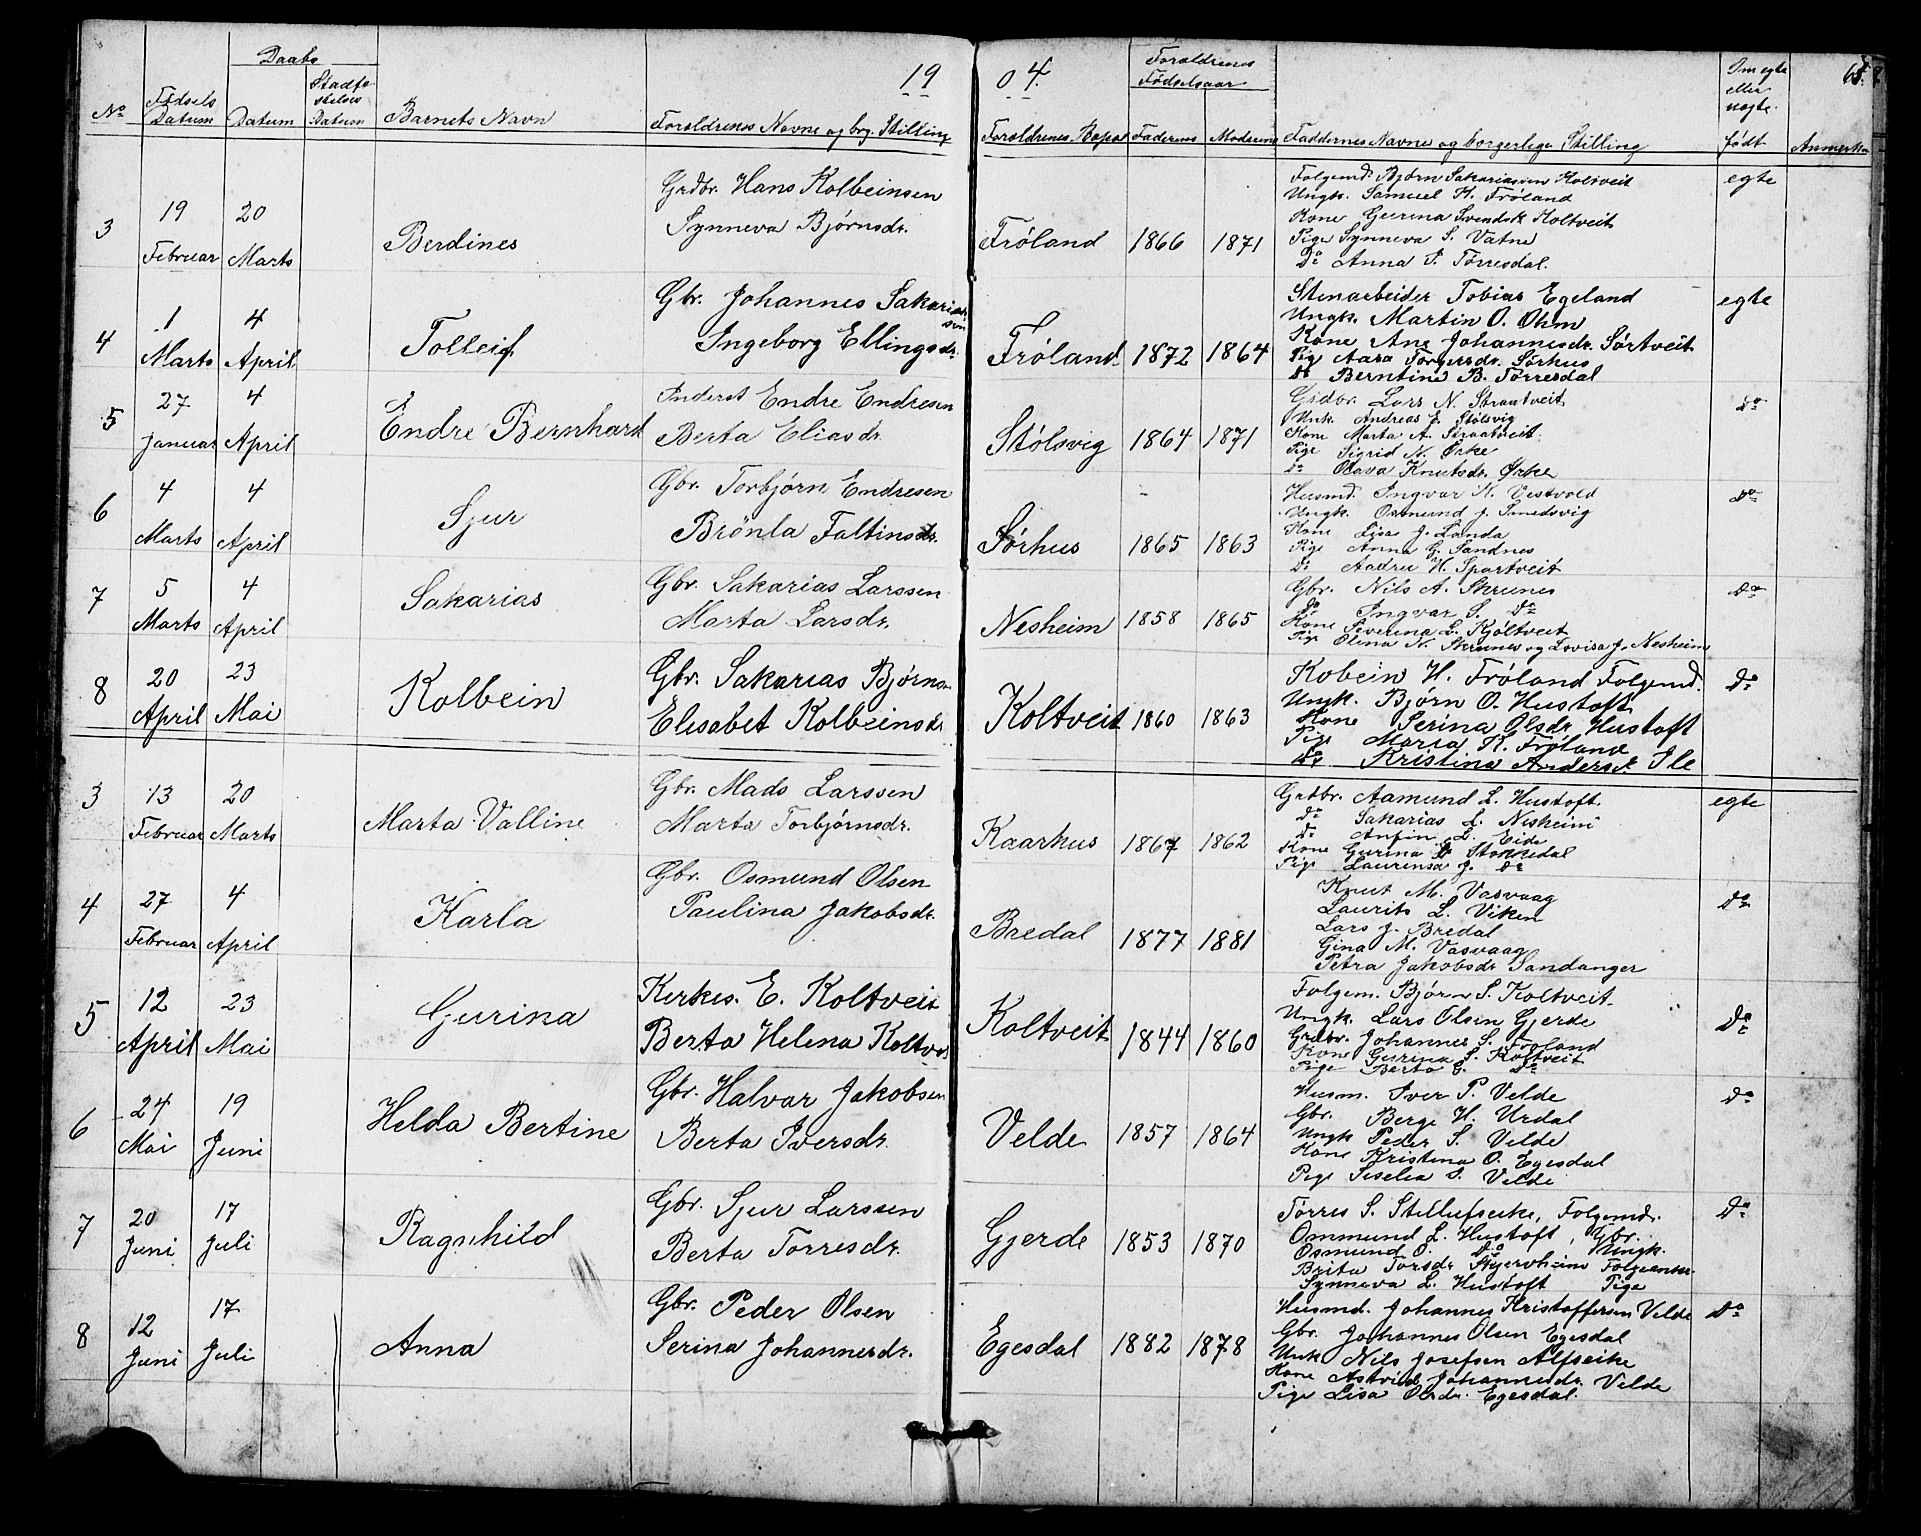 19 04.
65.
No
Fødsels Datum
Daabs
Datum
Stadfæstelses Datum
Barnets Navn
Foreldrenes Navne og brg. Stilling
Foreldrenes Bopæl
Foreldrenes Fødselsaar
Faderens
Moderens
Faddernes Navne og borgerlige Stilling
Om egte eller uegte født
Anmerkn
3
19 Februar
20 Marts
Berdines
Grdbr. Hans Kolbeinsen
Synneva Bjørnsdr.
Frøland
1866
1871
Folgemd. Bjørn Sakariassen Koltveit
Ungk. Samuel H. Frøland
Kone Gurina Svendsd. Koltveit
Pige Synneva S. Vatne
Do Anna S. Tørresdal.
egte
4
1 Marts
4 April
Tolleif
Gbr. Johannes Sakariassen
Ingeborg Ellingsdr.
Frøland
1872
1864
Stenarbeider Tobias Egeland
Ungk. Martin O. Ohm
Kone Ane Johannesdr. Sørtveit
Pige Aasa Torgersdr. Sørhus
Do Berntine B. Tørresdal
egte
5
27 Januar
4 April
Endre Bernhard
Inderst Endre Endresen
Berta Eliasdr.
Stølsvig
1864
1871
Grdbr. Lars N. Straatveit
Unk. Andreas E. Stølsvig
Kone Marta A. Straatveit.
Pige Sigrid N. Ørke
Do Olava Knutsdr. Ørke
Do
6
4 Marts
4 April
Sjur
Gbr. Torbjørn Endresen
Brønla Faltinsdr.
Sørhus
1865
1863
Husmd. Ingvar K. Vestvold
Ungk. Osmund J. Smedsvig
Kone Lisa J. Landa
Pige Anna G. Sandnes
Do Aadru H. Spartveit
Do
7
5 Marts
4 April
Sakarias
Gbr. Sakarias Larssen
Marta Larsdr.
Nesheim
1858
1865
Gbr. Nils A. Skrunes
Do Ingvar S. Do
Kone Severina L. Kjøltveit
Pige Olena N. Skrunes og Lovisa J. Nesheim
Do
8
20 April
23 Mai
Kolbein
Gbr. Sakarias Bjørns.
Elisabet Kolbeinsdr.
Koltveit
1860
1863
Kobein H. Frøland Folgemd.
Ungk. Bjørn O. Hustoft
Kone Serina Olsdr. Hustoft
Pige Maria K. Frøland
Do Kristina Andersd. Ile
Do
3
13 Februar
20 Marts
Marta Valline
Gbr. Mads Larssen
Marta Torbjørnsdr.
Kaarhus
1867
1862
Grdbr. Aamund L. Hustoft.
Do Sakarias L. Nesheim
Do Anfin L. Eide
Kone Gurina Stokkedal
Pige Laurensa J. Do
egte
4
27 Februar
4 April
Karla
Gbr. Osmund Olsen
Paulina Jakobsdr.
Bredal
1877
1881
Knut M. Vasvaag
Laurits L. Viken
Lars J. Bredal
Gina M. Vasvaag
Petra Jakobsdr Sandanger
Do
5
12 April
23 Mai
Gurina
Kirkes. E. Koltveit
Berta Helena Koltv.
Koltveit
1844
1860
Folgem. Bjørn S. Koltveit.
Ungk. Lars Olsen Gjerde
Grdbr. Johannes S. Frøland
Kone Gurina S. Koltveit
Pige Berta G. Do
Do
6
24 Mai
19 Juni
Helda Bertine
Gbr. Halvar Jakobsen
Berta Iversdr.
Velde
1857
1864
Husm. Iver P. Velde
Gbr. Berge H. Urdal
Ungk Peder S. Velde
Kone Kristena O. Egesdal
Pige Seselia S. Velde
Do
7
20 Juni
17 Juli
Ragnhild
Gbr. Sjur Larssen
Berta Torresdr.
Gjerde
1853
1870
Tørres S. Stellufseike, Folgemd.
Ommund L. Hustoft, Gbr.
Osmund O. Do Ungk.
Brita Torsdr Skjervheim Folgeenke
Synneva L. Hustoft Pige
Do
8
12 Juni
17 Juli
Anna
Gbr. Peder Olsen
Serina Johannesdr.
Egesdal
1882
1878
Husmd. Johannes Kristoffersen Velde
Gbr. Johannes Olsen Egesdal
Unk Nils Josefsen Alfseike
Kone Astrid Johannesdr. Velde
Pige Lisa Olsdr. Egesdal.
Do